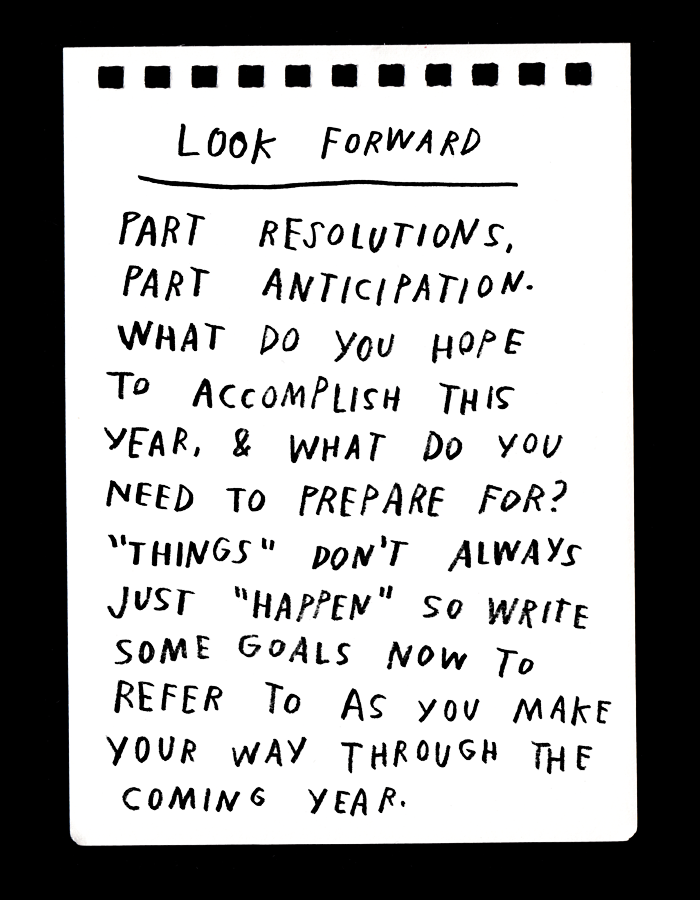 LOOK FORWARD
PART RESOLUTIONS,
PART ANTICIPATION.
WHAT DO YOU HOPE
TO ACCOMPLISH THIS
YEAR, & WHAT DO YOU
NEED TO PREPARE FOR?
"THINGS" DON'T ALWAYS
JUST "HAPPEN" SO WRITE
SOME GOALS NOW TO
REFER TO AS YOU MAKE
YOUR WAY THROUGH THE
COMING YEAR.